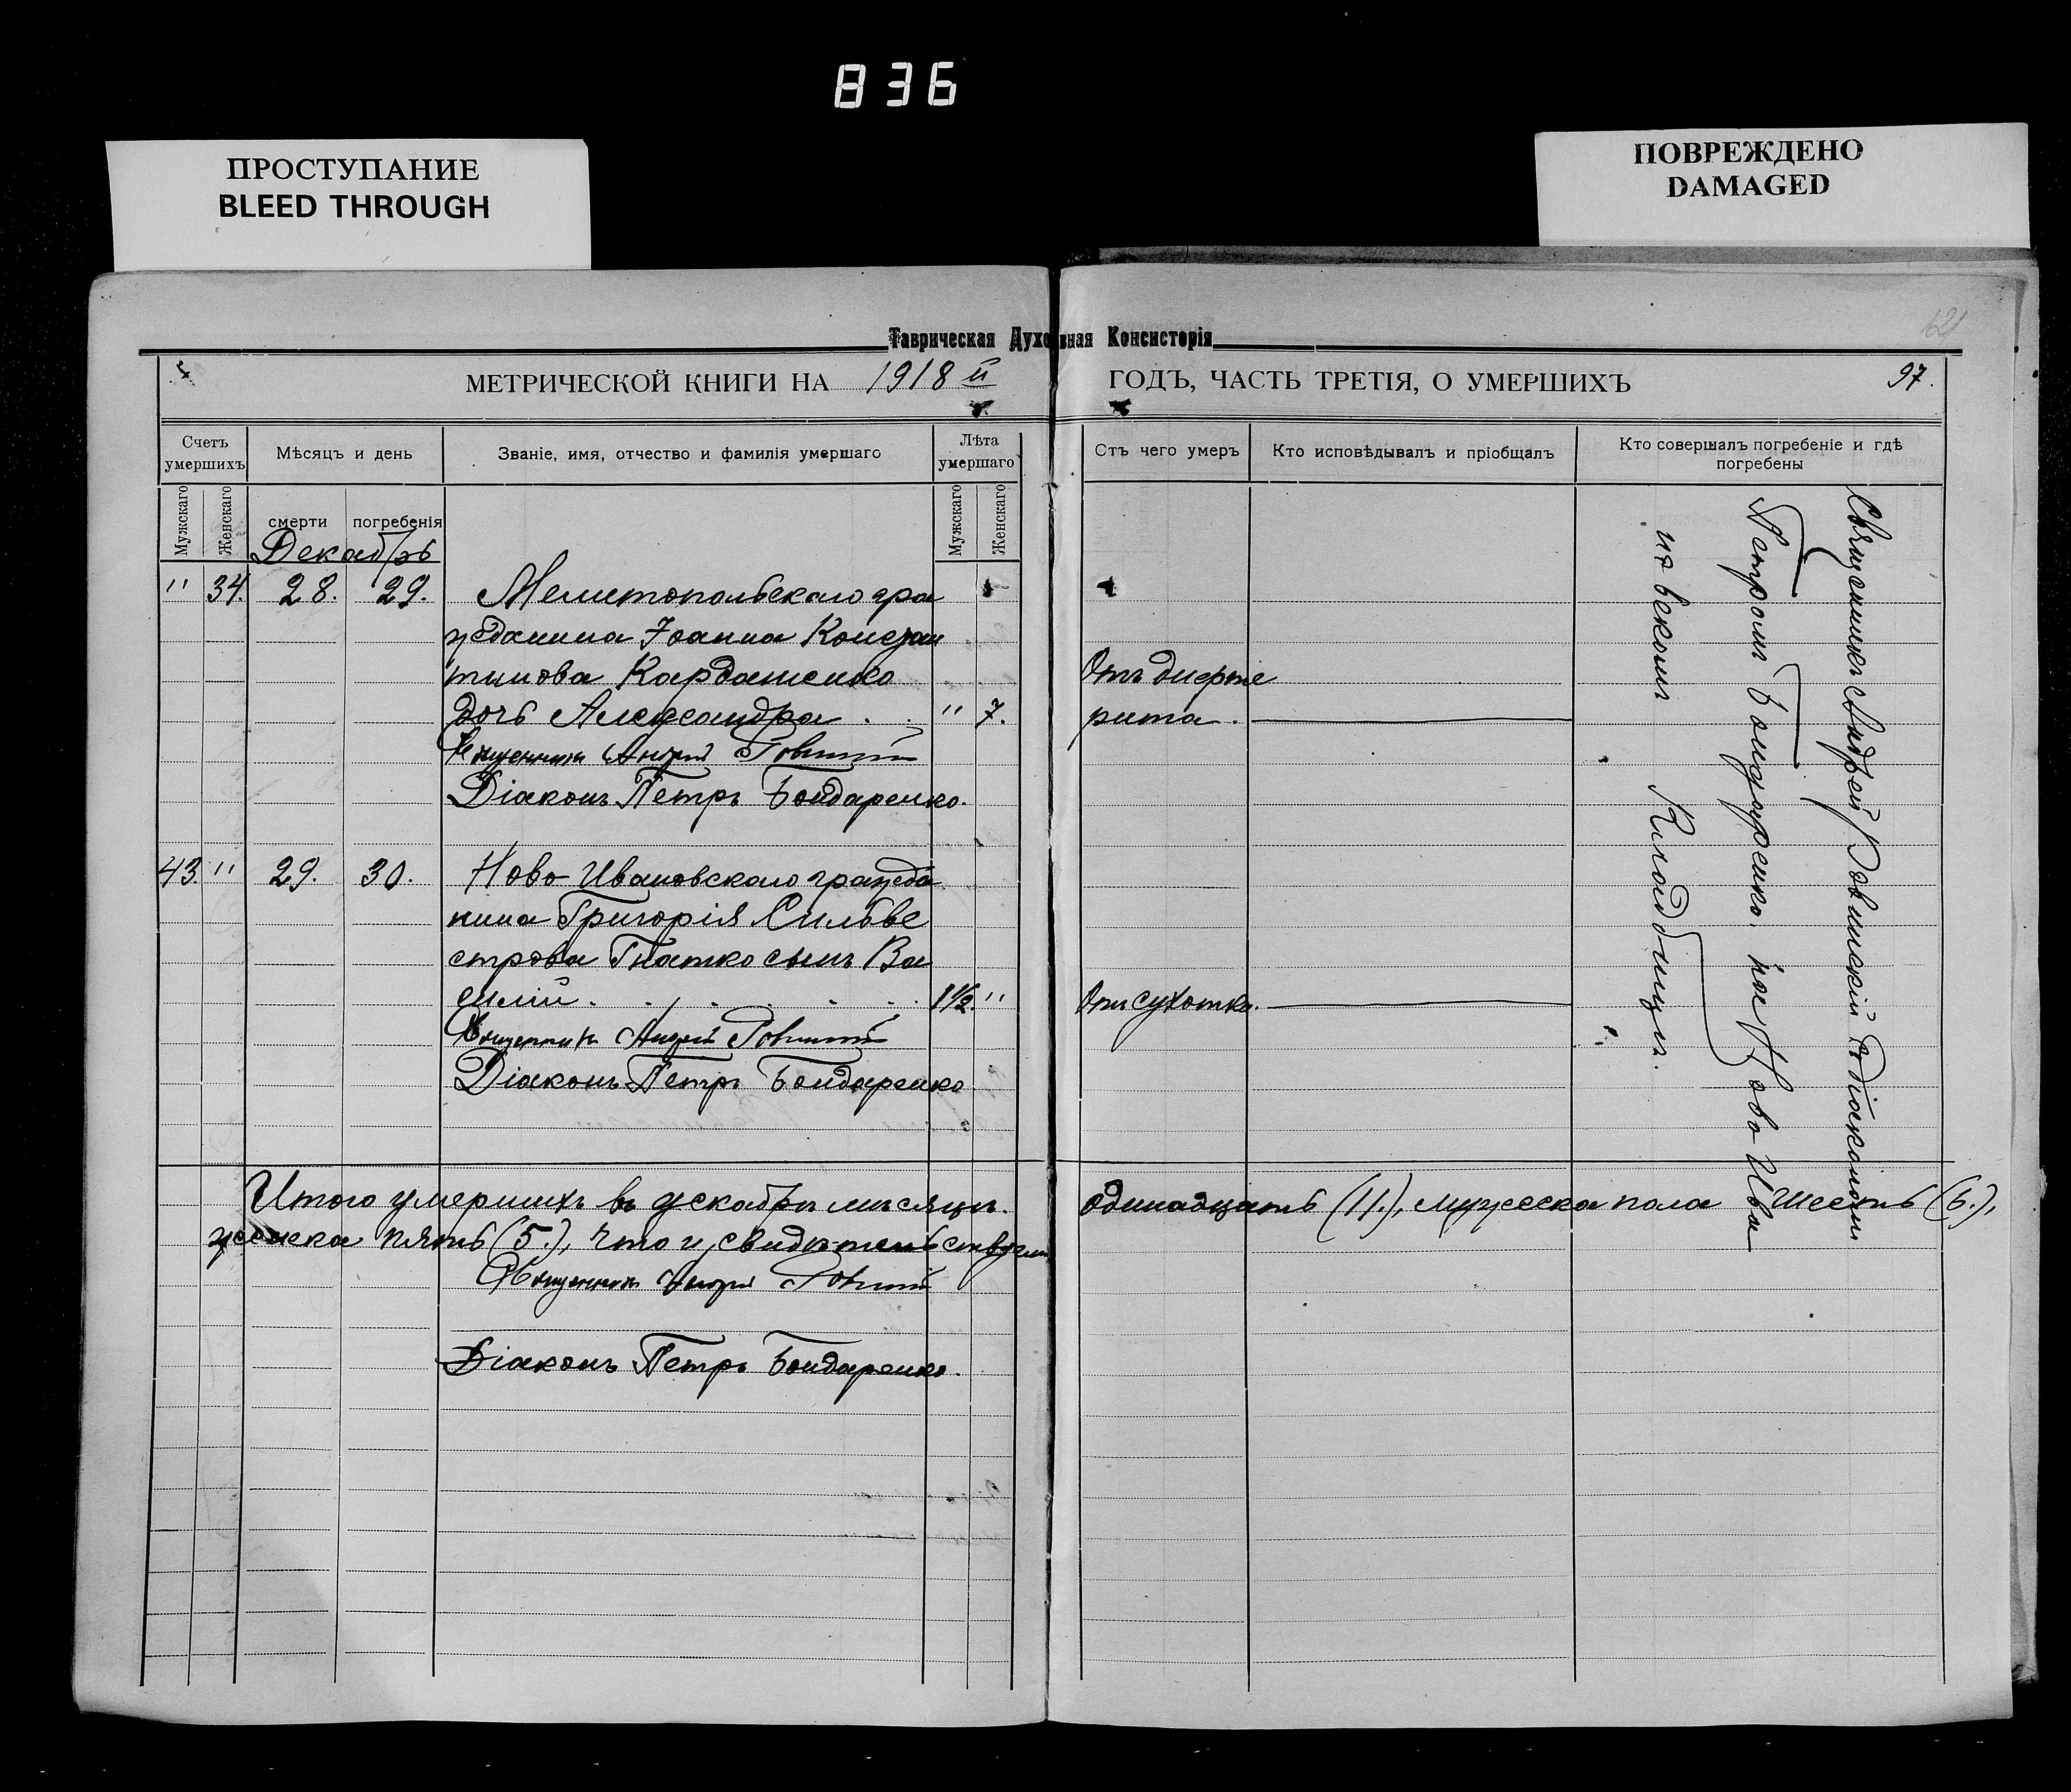 836
ПРОСТУПАНИЕ
BLEED THROUGH
ПОВРЕЖДЕНО
DAMAGED
Таврическая Духовная Консисторія
МЕТРИЧЕСКОЙ КНИГИ НА 1918 й ГОДЪ, ЧАСТЬ ТРЕТІЯ, О УМЕРШИХЪ 97.
Счетъ умершихъ
Мужскаго
Женскаго
Мѣсяцъ и день
смерти
погребенія
Званіе, имя, отчество и фамилія умершаго
Лѣта умершаго
Мужскаго
Женскаго
Отъ чего умеръ
Кто исповѣдывалъ и пріобщалъ
Кто совершалъ погребеніе и гдѣ
погребены
Декабрь
" 34. 28. 29. Мелитопольскаго гра
жданина Іоанна Констан
тинова Кардашенко Отъ дифте
дочь Александра . . " 7. рита.
Священникъ Андрей Ровинскій
Діаконъ Петръ Бондаренко.
43. " 29. 30. Ново-Ивановскаго гражда
нина Григорія Сильве
строва Гнатко сынъ Ва
силій . . . . . . 1½ " Отъ сухотки.
Священникъ Андрей Ровинскій
Діаконъ Петръ Бондаренко
Священникъ Андрей Ровинскій съ діакономъ
Петромъ Бондаренко. на Ново-Ива
новскомъ Кладбищѣ.
Итого умершихъ въ декабрѣ мѣсяцѣ одинадцать (11.), мужеска пола шесть (6.),
женска пять (5.), что и свидѣтельствуемъ
Священникъ Андрей Ровинскій
Діаконъ Петръ Бондаренко.